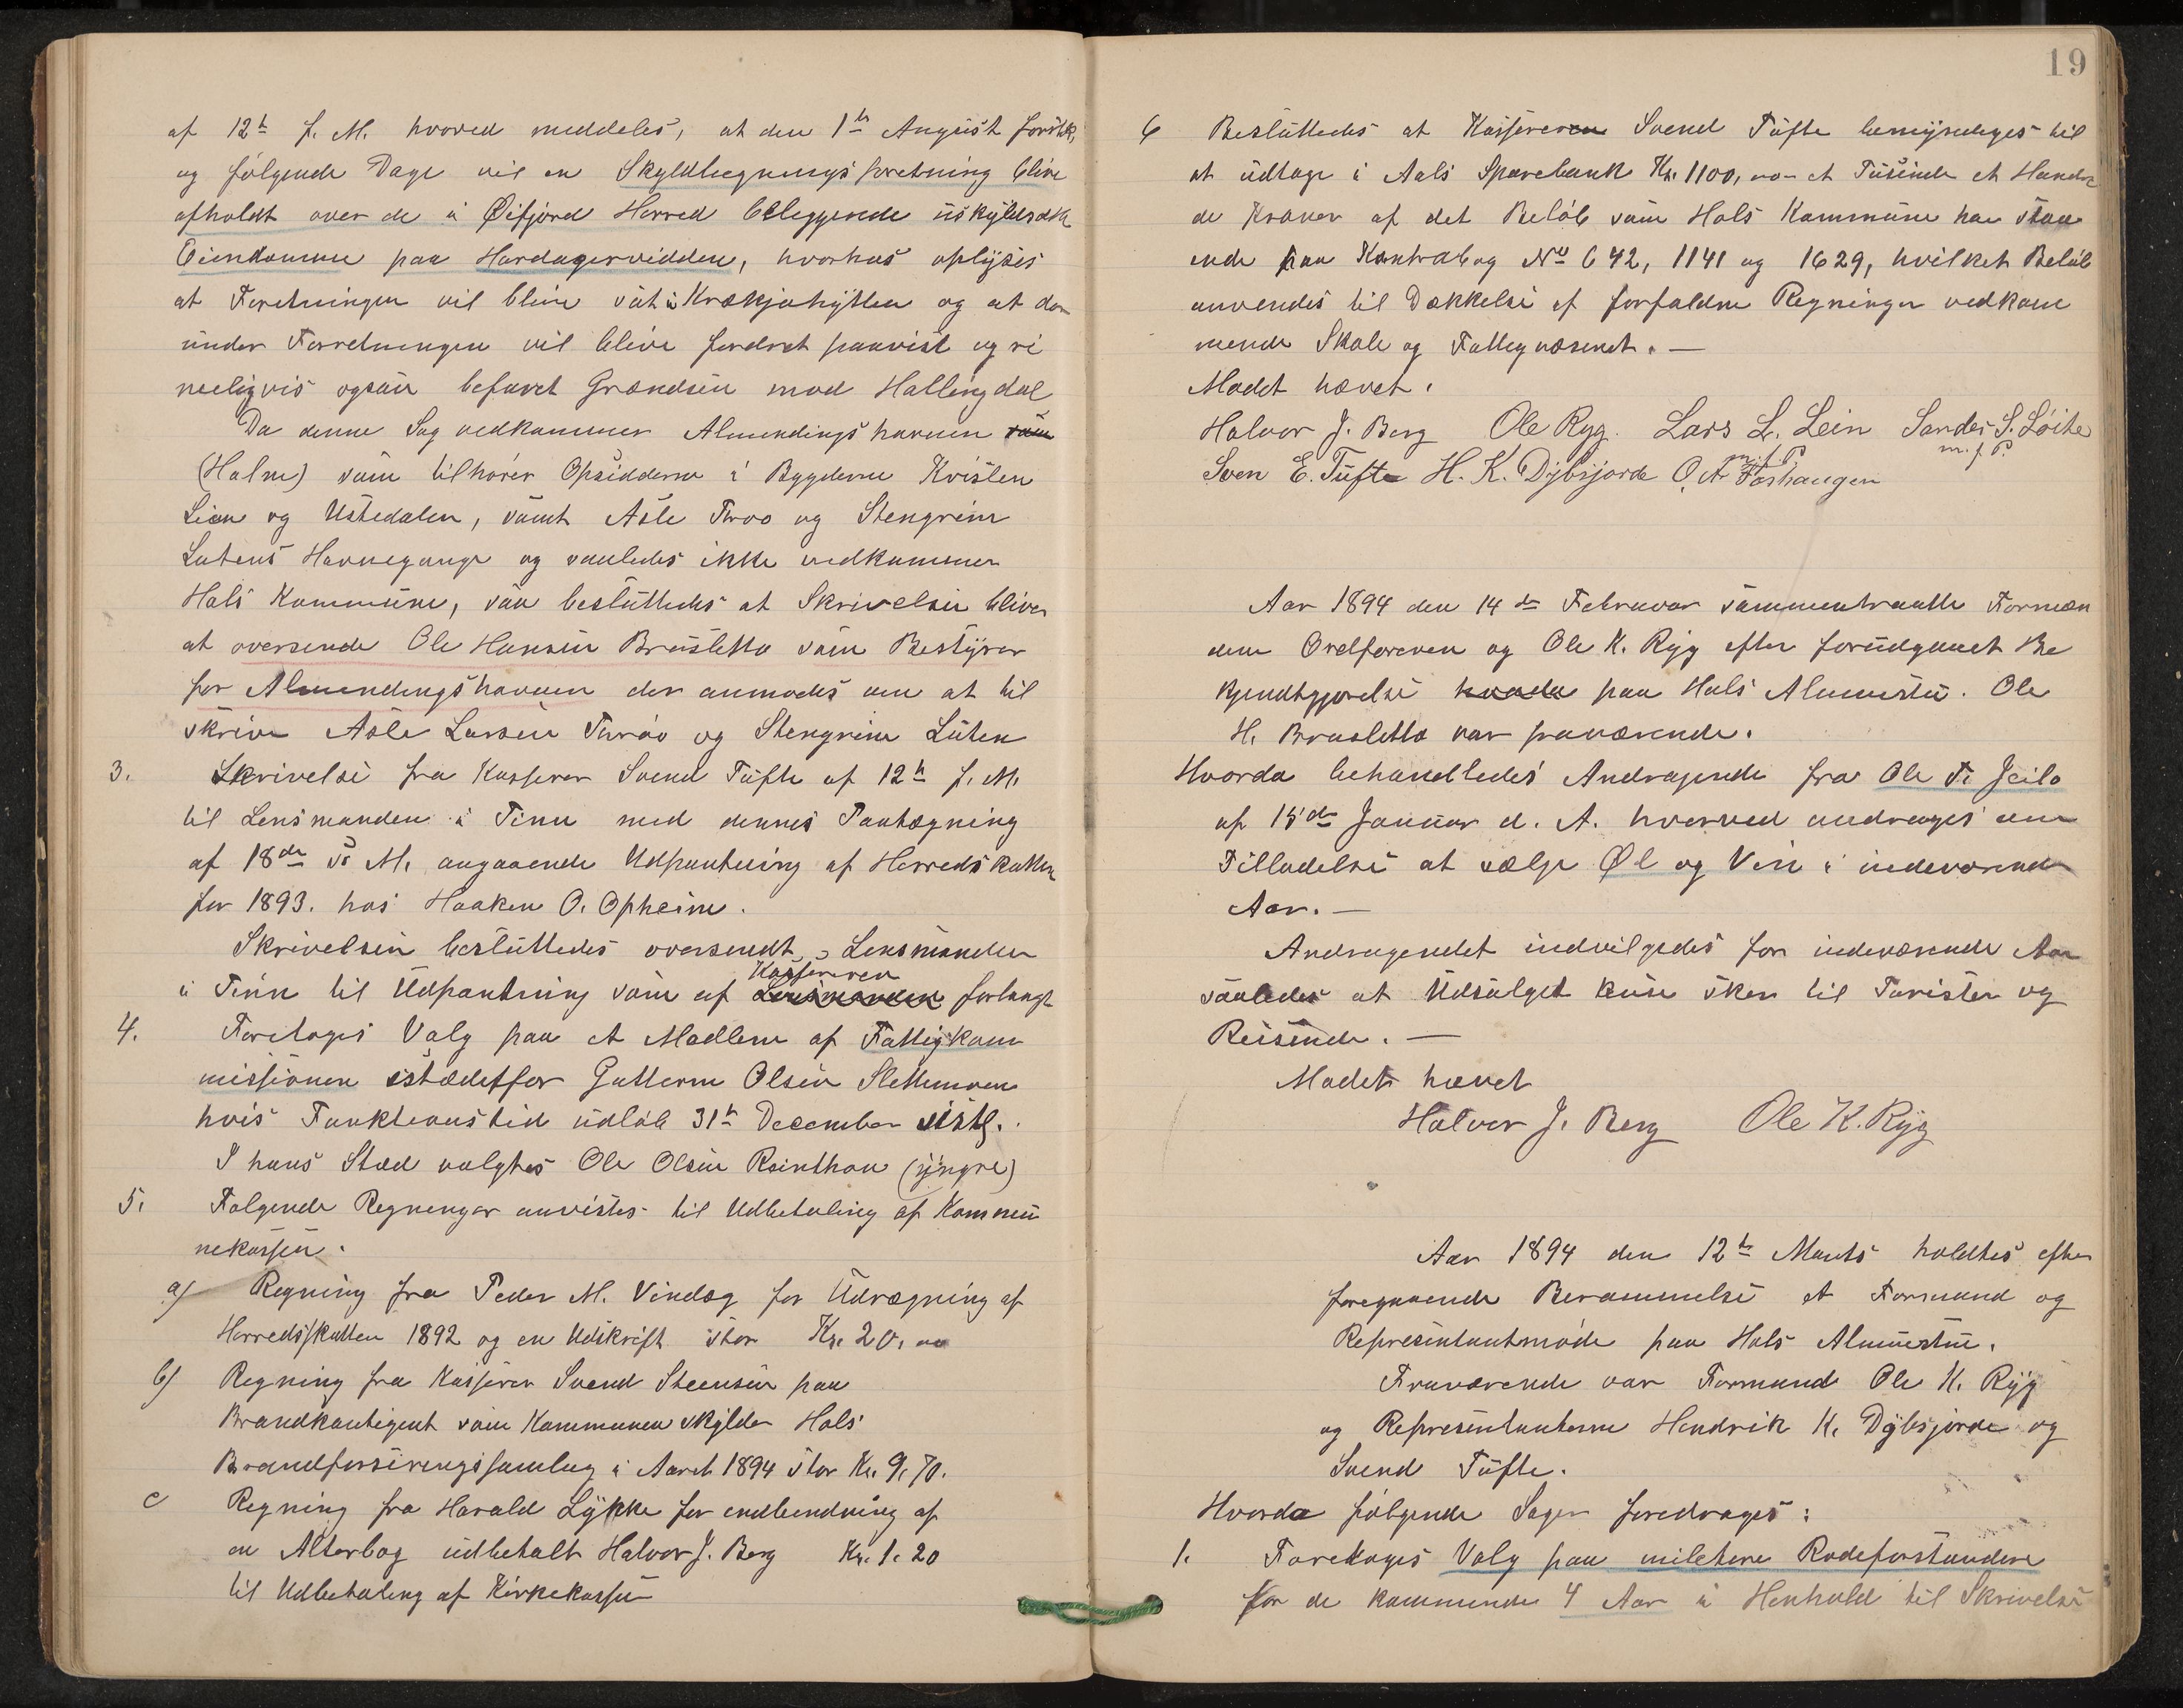 af 12te f. M. hvorved meddeles, at den 1ste August førstk.
og følgende Dage vil en Skyldlægningsforretning blive
afholdt over de i Øifjord Herred beliggende uskyldsatte
Eiendomme paa Hardangervidden, hvorhos oplyses
at Forretningen vil blive sat i Krækjahytten og at der
under Forretningen vil blive fordret paavist og ri
meeligvis ogsaa befaret Grændsen mod Hallingdal
Da denne Sag vedkommer Almendingshavnen som
(Halne) som tilhører Opsidderne i Bygderne Kvisten
Lien og Ustedalen, samt Asle Throo og Stengrim
Lutens Havnegange og saaledes ikke vedkommer
Hols Kommune, saa besluttedes at Skrivelsen bliver
at oversende Ole Hansen Brusletto som Bestyrer
for Almendingshavnen der anmodes om at til
skrive Asle Larsen Thröo og Stengrim Luten
3. Skrivelse fra Kasserer Svend Tufte af 12te f. M.
til Lensmanden i Tinn med dennes Paategning
af 18de s. M. angaaende Udpantning af Herredskatten
for 1893. hos Haaken O. Opheim.
Skrivelsen besluttedes oversendt Lensmanden
Kassereren
i Tinn til Udpantning som af Lensmanden forlangt
4. Foretoges Valg paa et Medlem af Fattigkom
missionen istædetfor Guttorm Olsen Slettemoen
hvis Funktionstid udløb 31te December sistl.
I hans Sted valgtes Ole Olsen Reinthon (yngre)
5. Følgende Regninger anvistes til Udbetaling af Kommu
nekassen.
a) Regning fra Peder M. Vindeg for Udregning af
Herredsskatten 1892 og en Udskrift stor Kr. 20.00
b) Regning fra Kasserer Svend Steensen paa
Brandkontigent som Kommunen skylder Hols
Brandforsikringssamlag i Aaret 1894 stor Kr. 9.70.
c Regning fra Harald Lykke for indbinding af
en Alterbog udbetalt Halvor J. Berg Kr. 1.20
til Udbetaling af Kirkekassen
19
6 Besluttedes at Kassereren Svend Tufte bemyndiges til
at udtage i Aals Sparebank Kr. 1100,00 et Tusinde et Hundre
de Kroner af det Beløb som Hols Kommune har staa
ende paa Kontrabog No 642, 1141 og 1629, hvilket Beløb
anvendes til Dækkelse af forfaldne Regninger vedkom
mende Skole og Fattigvæsenet. —
Mødet hævet.
Halvor J. Berg Ole Ryg. Lars L. Lein Sander S. Løite
m. f. P. m. f. P.
Sven E. Tufte H. K. Dybsjorde O. A. Foshaugen
Aar 1894 den 14de Februar sammentraatte Formæn
dene Ordføreren og Ole K. Ryg efter forudgaaet Be
kjendtgjørelse hvorda paa Hols Almuestu. Ole
H. Brusletto var fraværende.
Hvorda behandledes Andragende fra Ole T. Jeilo
af 15de Januar d. A. hvorved andrages om
Tilladelse at sælge Øl og Vin i indeværende
Aar. —
Andragendet indvilgedes for indeværende Aar
saaledes at Udsalget kuns sker til Turister og
Reisende. —
Mødet hævet
Halvor J. Berg Ole K. Ryg
Aar 1894 den 12te Marts holdtes efter
foregaaende Berammelse et Formand og
Representantmøde paa Hols Almuestue.
Fraværende var Formand Ole K. Ryg
og Representanterne Hendrik K. Dybsjorde og
Svend Tufte.
Hvorda følgende Sager foredroges:
1. Foretoges Valg paa miletære Rodeforstandere
for de kommende 4 Aar i Henhold til Skrivelse